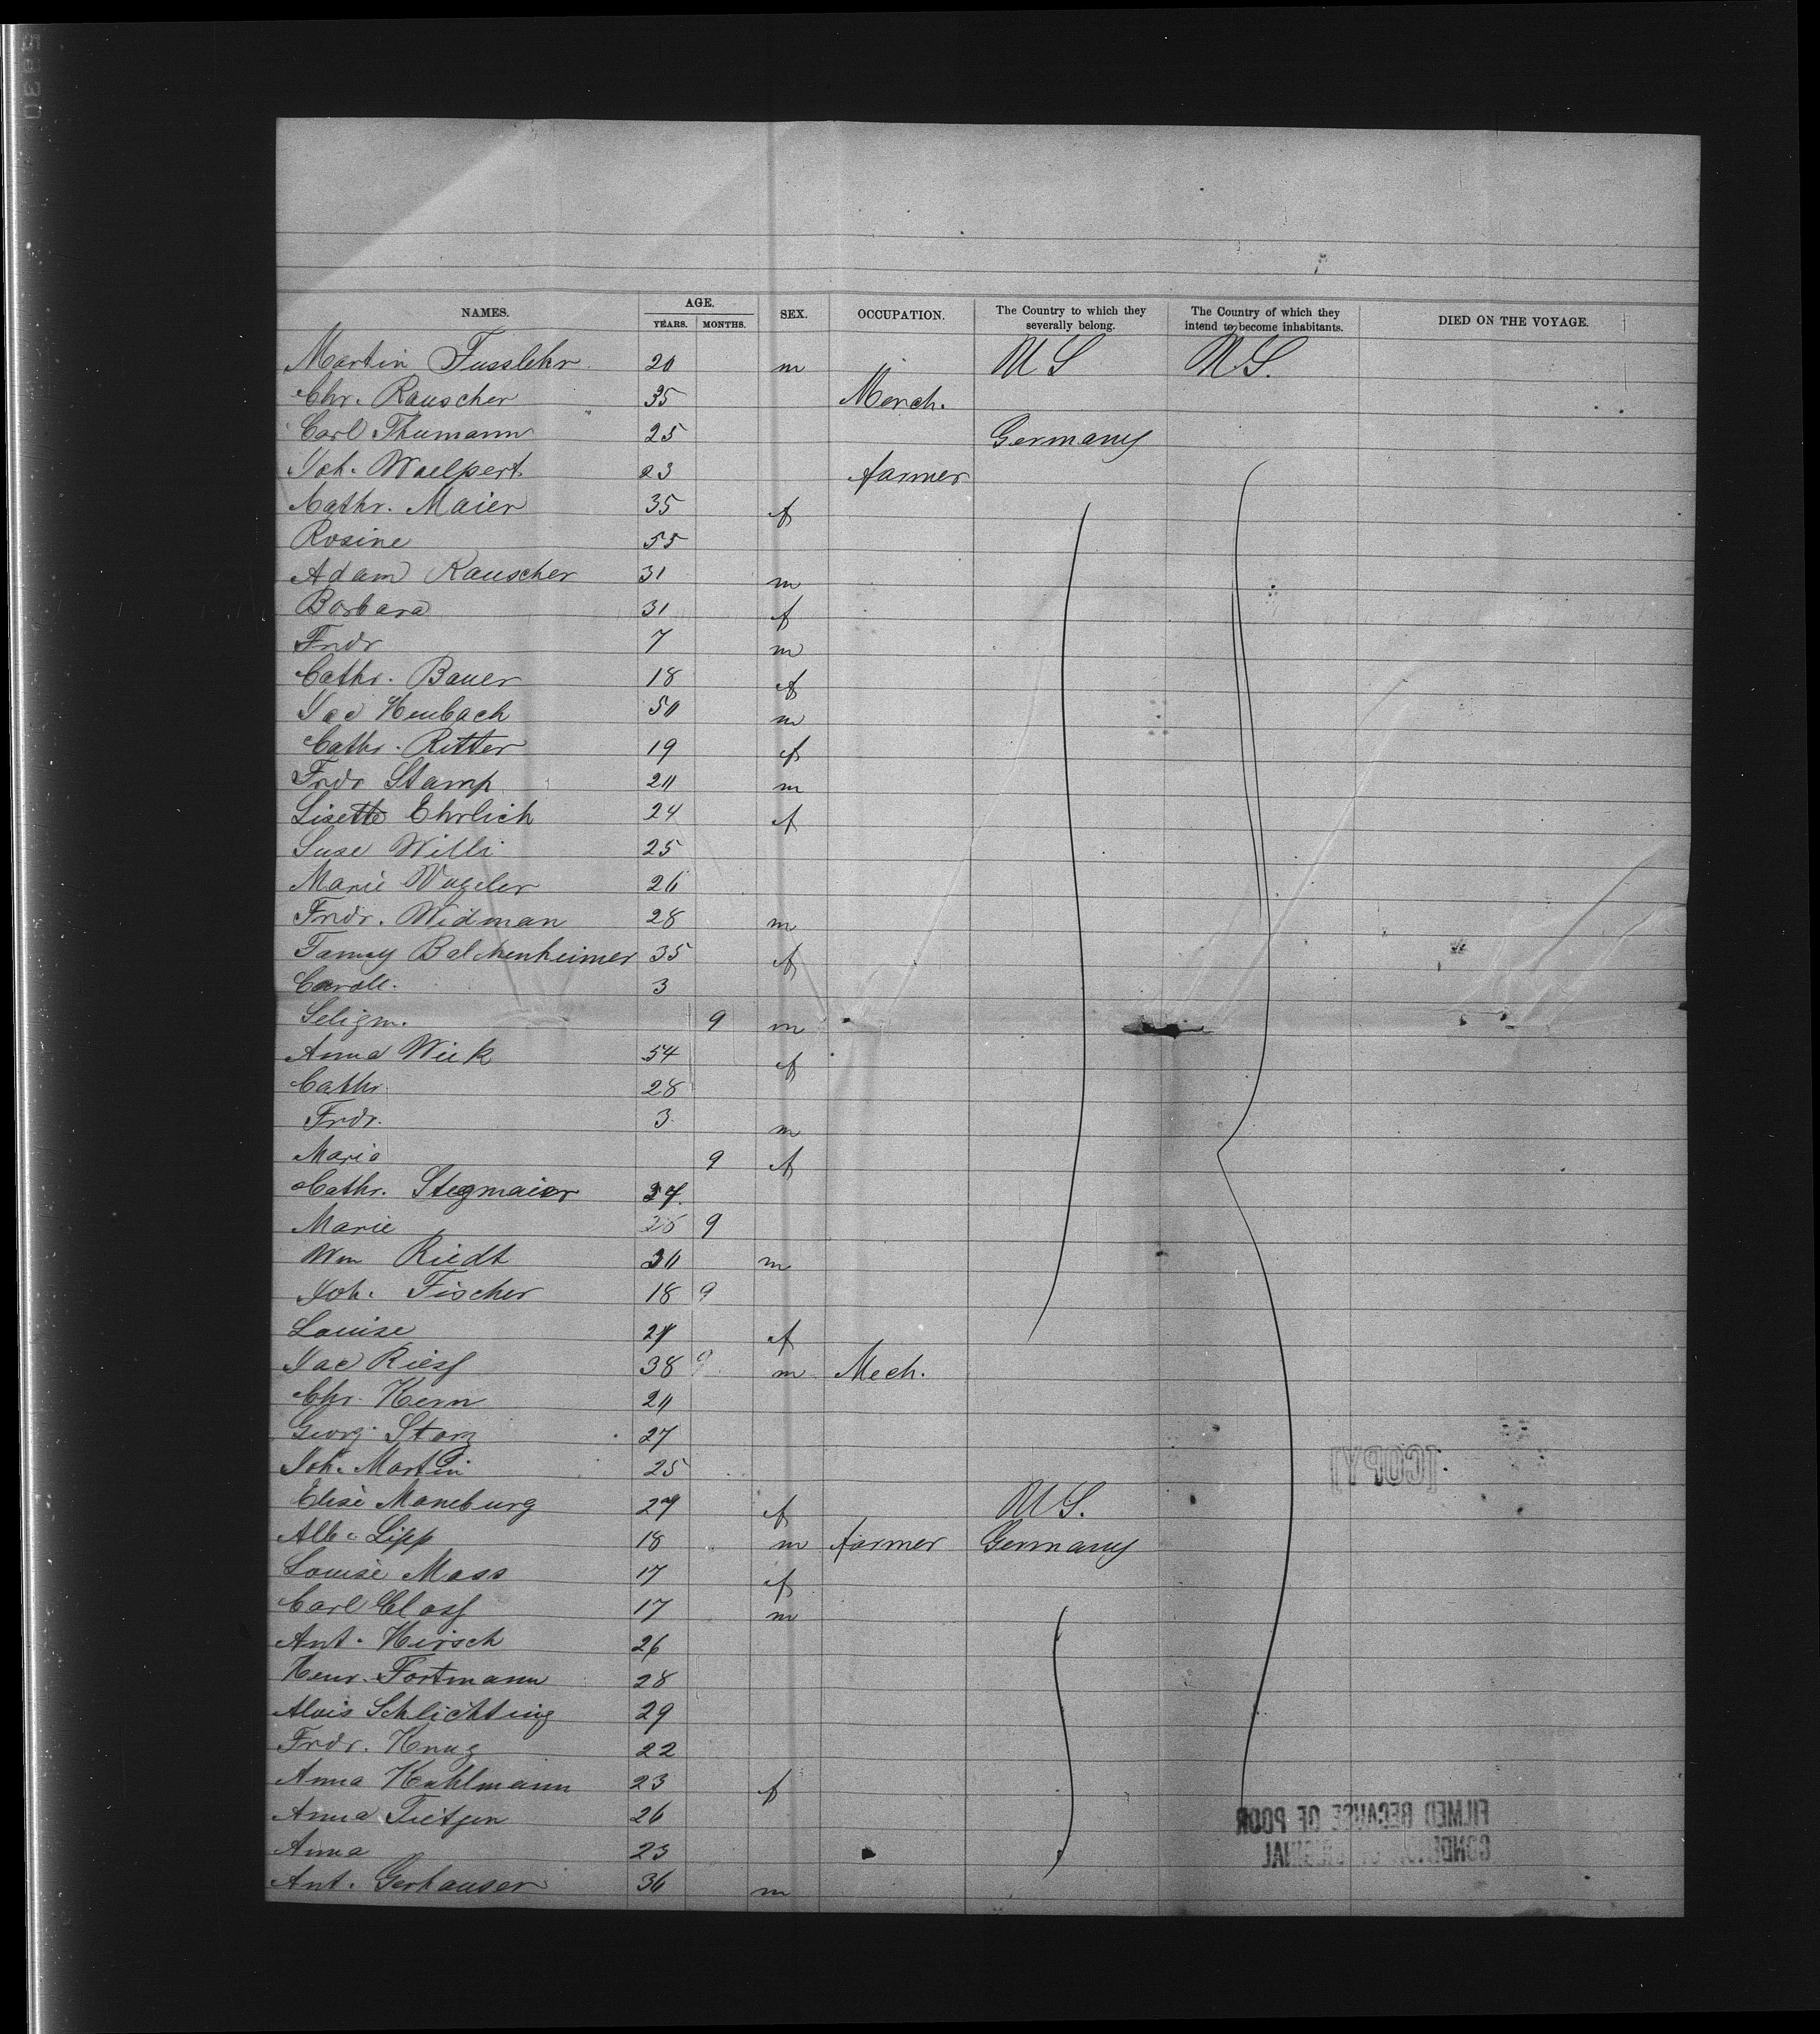 NAMES. AGE. YEARS. MONTHS. SEX. OCCUPATION. The Country to which they severally belong. The Country of which they intend to become inhabitants. DIED ON THE VOYAGE.
Martin Fusslehr 20 m " U S U.S.
Chr. Rauscher 35 Merch.
Carl Thumann 25 Germany
Joh. Woelpert 23 farmer
Cathr. Maier 35 f
Rosine 55
Adam Rauscher 31 m
Barbara 31 f
Frdr 7 m
Cathr. Bauer 18 f
Jac Heubach 50 m
Cathr. Ritter 19 f
Frdr Stamp 20 m
Lisette Ehrlich 24 f
Suse Willi 25
Marie Vogeler 26
Frdr. Widman 28 m
Fanny Balchenheimer 35 f
Caroll. 3
Seligm. 9 m
Anna Wiek 54 f
Cathr. 28
Frdr. 3 m
Maria 9 f
Cathr. Stegmaier 37
Marie 9
Wm Riedt 30 m
Joh. Fischer 18 9
Louise f
Jac Riess 38 9 m Mech.
Chr. Kern 20
Georg Storz 27
Joh. Martin 25
Elise Maneburg 27 f U S.
Alb. Lipp 18 m farmer Germany
Louise Mass 17 f
Carl Class 17 m
Ant. Hirsch 26
Henr. Fortmann 28
Alois Schlichting 29
Frdr. Knug 22
Anna Kuhlmann 23 f
Anna Tietjen 26
Anna 23
Ant. Gerhauser 36 m
[COPY]
FILMED BECAUSE OF POOR
CONDITION OF ORIGINAL